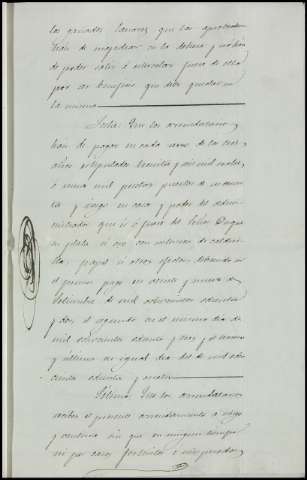 los ganados lanares que los aprovechen
han de majadear en la dehesa y no han
de poder salir á estercolar fuera de ella
por ser beneficio que debe quedar en
la misma
Sesta: Que los arrendatarios
han de pagar en cada uno de los tres
años estipulados treinta y seis mil reales,
ó nueve mil pesetas puestos de su cuenta
y riesgo en casa y poder del admi-
nistrador que es ó fuere del Señor Duque
en plata ú oro con exclusion de calderi-
lla, papel ú otros efectos debiendo ser
el primer pago en veinte y nueve de
Setiembre de mil ochocientos ochenta
y dos, el segundo en el mismo dia de
mil ochocientos ochenta y tres y el tercero
y último en igual dia del de mil ocho-
cientos ochenta y cuatro
Sétima: Que los arrendatarios
reciben el presente arrendamiento á riesgo
y ventura sin que en ningun tiempo
ni por casos fortuitos é inesperados,